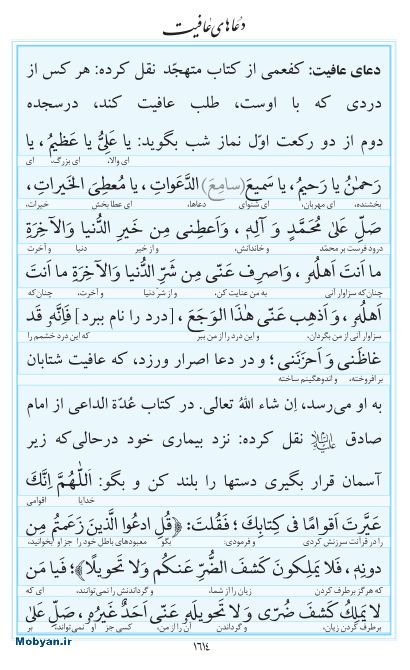 دعاهای عافیت
دعای عافیت: کفعمی از کتاب متهجّد نقل کرده: هر کس از
دردی که با اوست، طلب عافیت کند، درسجده
دوم از دو رکعت اوّل نماز شب بگوید: یا عَلِیُّ یا عَظیمُ، یا
ای والا، ای بزرگ، ای
رَحمٰنُ یا رَحیمُ، یا سَمیعَ(سامِعَ) الدَّعَواتِ، یا مُعطِیَ الخَیراتِ،
بخشنده، ای مهربان، ای شنوای دعاها، ای عطابخش خیرات،
صَلِّ عَلیٰ مُحَمَّدٍ وَ آلِهِ، وَاَعطِنی مِن خَیرِ الدُّنیا وَالآخِرَةِ
درود فرست بر محمّد و خاندانش، و از خیر دنیا و آخرت
ما اَنتَ اَهلُهُ، وَاصرِف عَنّی مِن شَرِّ الدُّنیا وَالآخِرَةِ ما اَنتَ
چنان‌که سزاوار آنی به من عنایت کن، و از شرّ دنیا و آخرت، چنان‌که
اَهلُهُ، وَ اَذهِب عَنّی هٰذَا الوَجَعَ، [درد را نام ببرد] فَاِنَّهُ قَد
سزاوار آنی از من بگردان، و این درد را از من ببر که این درد خشمم را
غاظَنی وَ اَحزَنَنی؛ و در دعا اصرار ورزد، که عافیت شتابان
برافروخته، و اندوهگینم ساخته
به او می‌رسد، اِن شاء اللهُ تعالی. در کتاب عُدّة الداعی از امام
صادق علیه‌السلام نقل کرده: نزد بیماری خود درحالی‌که زیر
آسمان قرار بگیری دستها را بلند کن و بگو: اَللّٰهُمَّ اِنَّکَ
خدایا اقوامی
عَیَّرتَ اَقوامًا فی کِتابِکَ؛ فَقُلتَ: ﴿قُلِ ادعُوا الَّذینَ زَعَمتُم مِن
را در قرآنت سرزنش کردی و فرمودی: بگو معبودهای باطل خود را جز او بخوانید،
دونِهِ، فَلا یَملِکونَ کَشفَ الضُّرِّ عَنکُم وَلا تَحویلًا﴾؛ فَیا مَن
که هرگز برطرف کردن زیان را از شما، و گرداندنش را نمی‌توانند، ای که
لا یَملِکُ کَشفَ ضُرّی وَ لا تَحویلَهُ عَنّی اَحَدٌ غَیرُهُ، صَلِّ عَلیٰ
برطرف کردن زیان، و گرداندن آن را از من، کسی جز او نمی‌تواند، بر
۱۶۱۴
Mobyan.ir